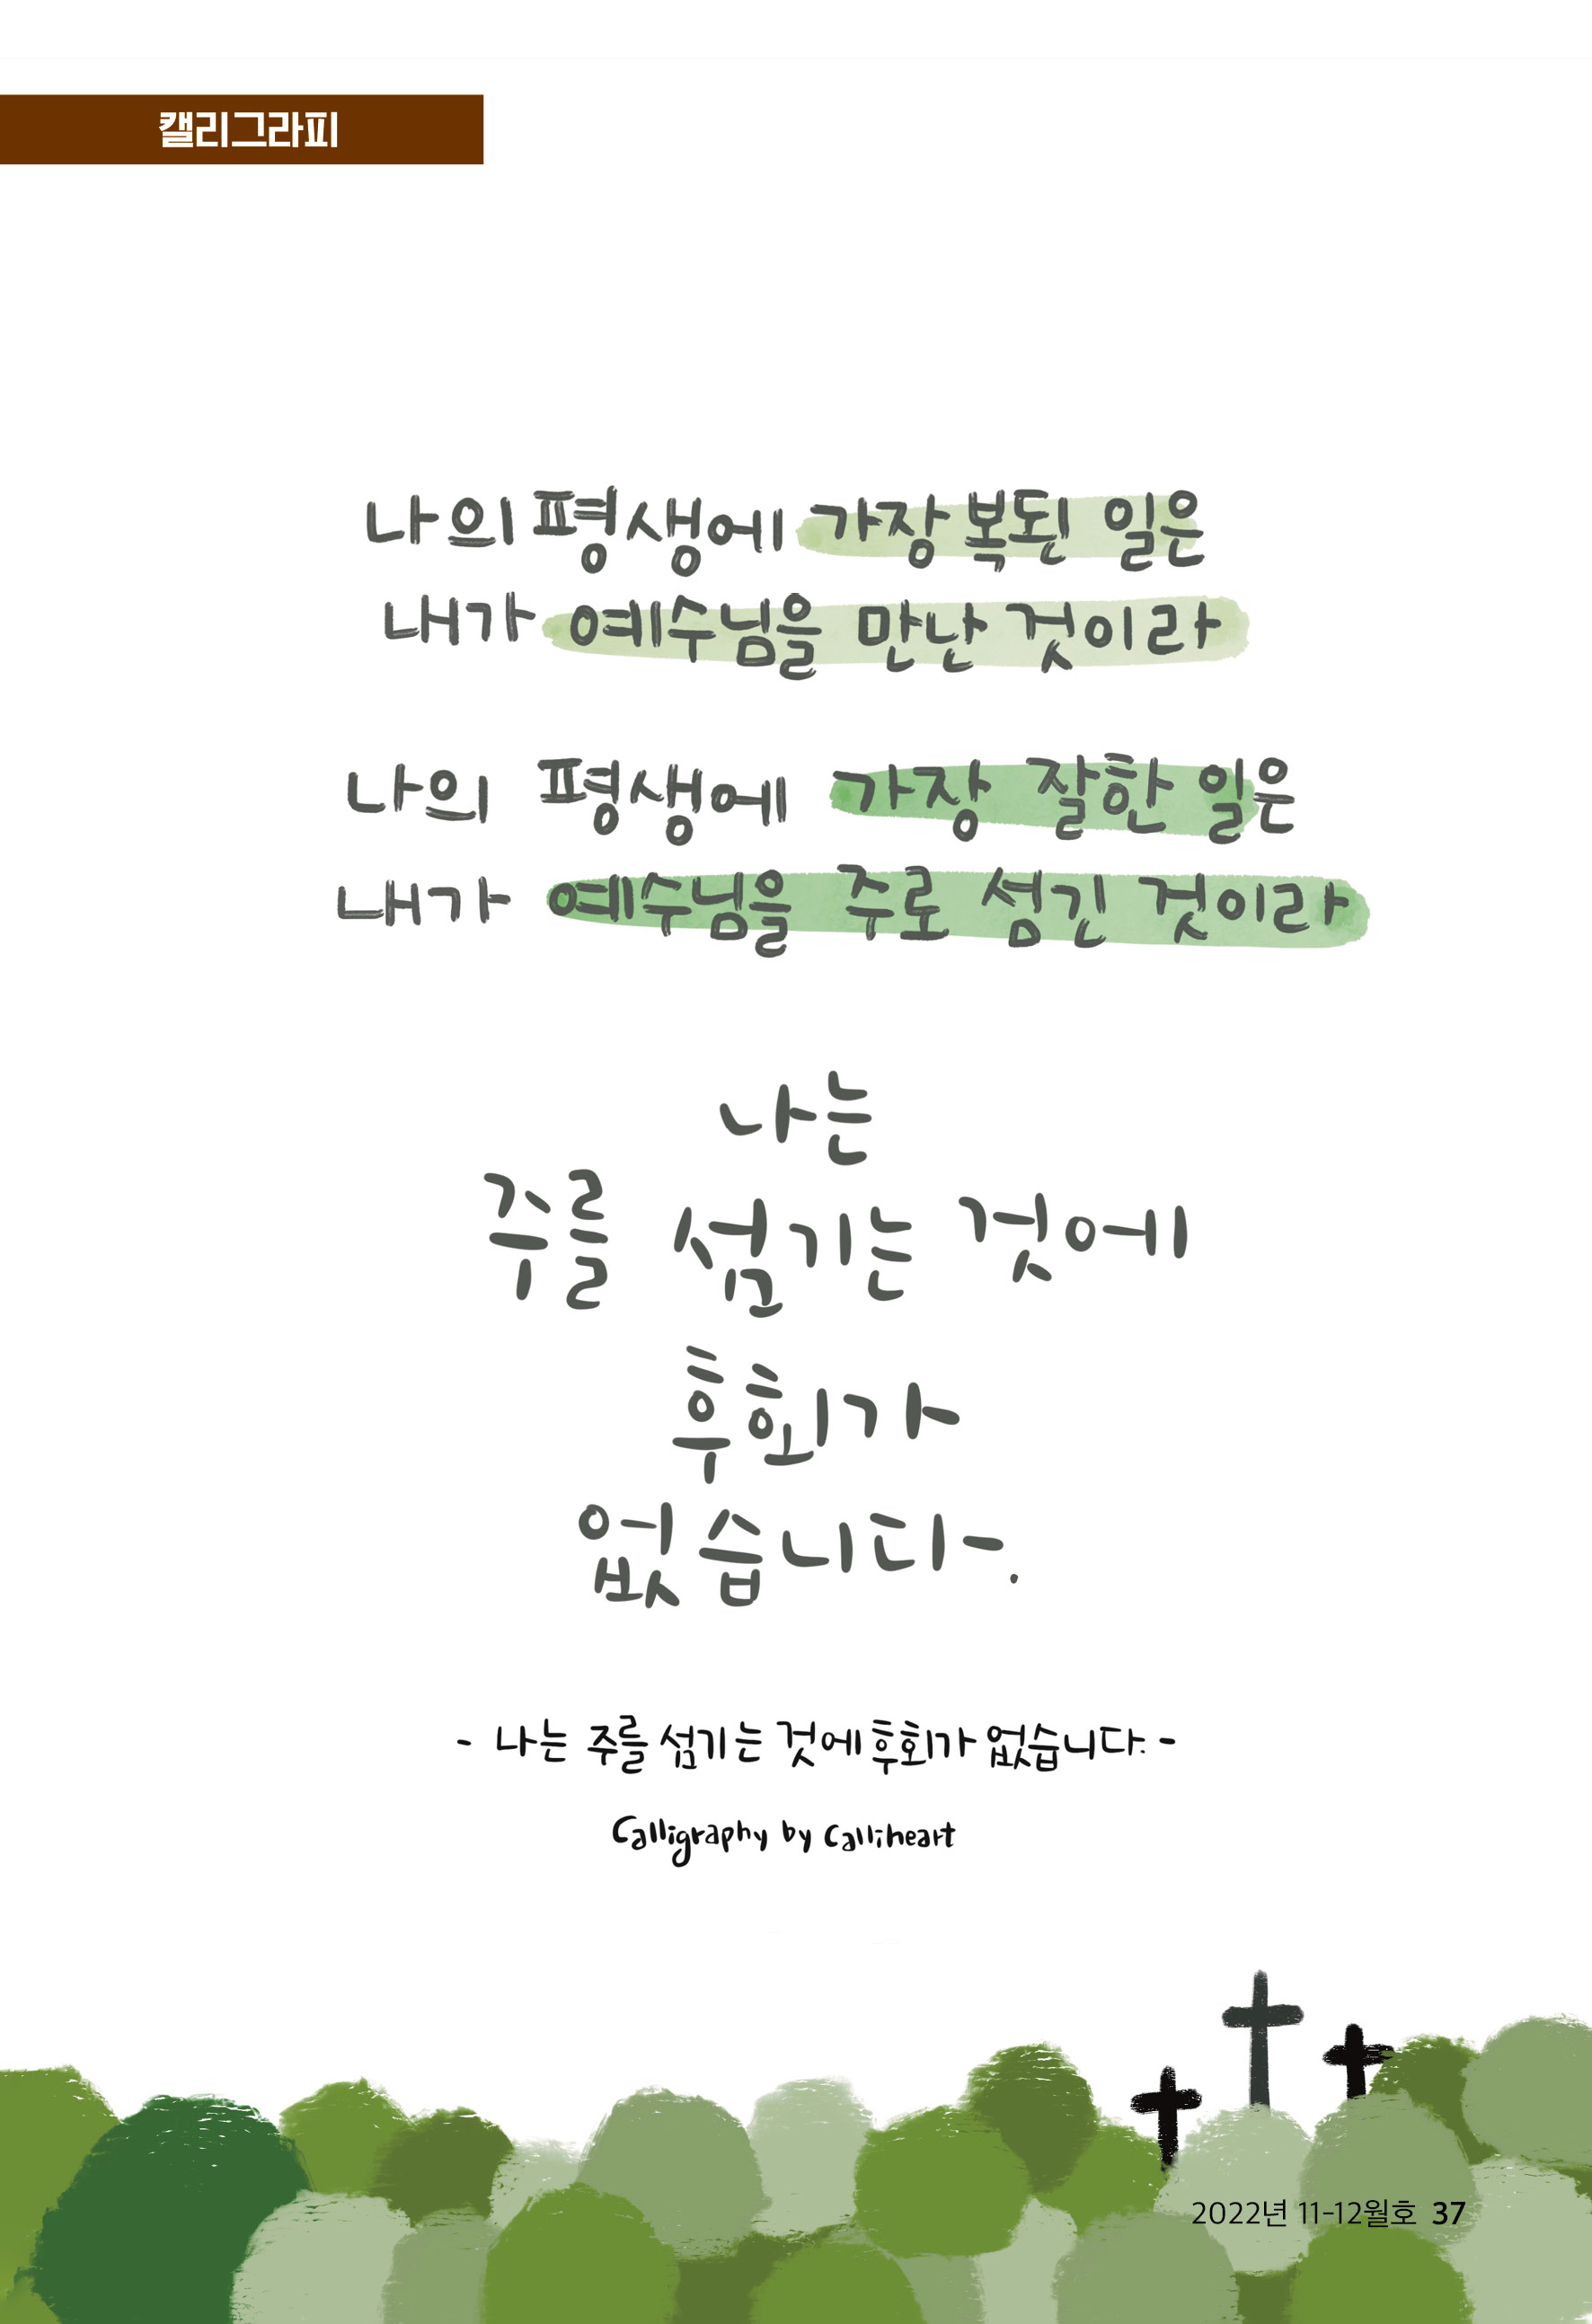 캘리그라피
나의 평생에 가장 복된 일은
내가 예수님을 만난 것이라
나의 평생에 가장 잘한 일은
내가 예수님을 주로 섬긴 것이라
나는
주를 섬기는 것에
후회가
없습니다.
- 나는 주를 섬기는 것에 후회가 없습니다. -
Calligraphy by Calliheart
2022년 11-12월호 37